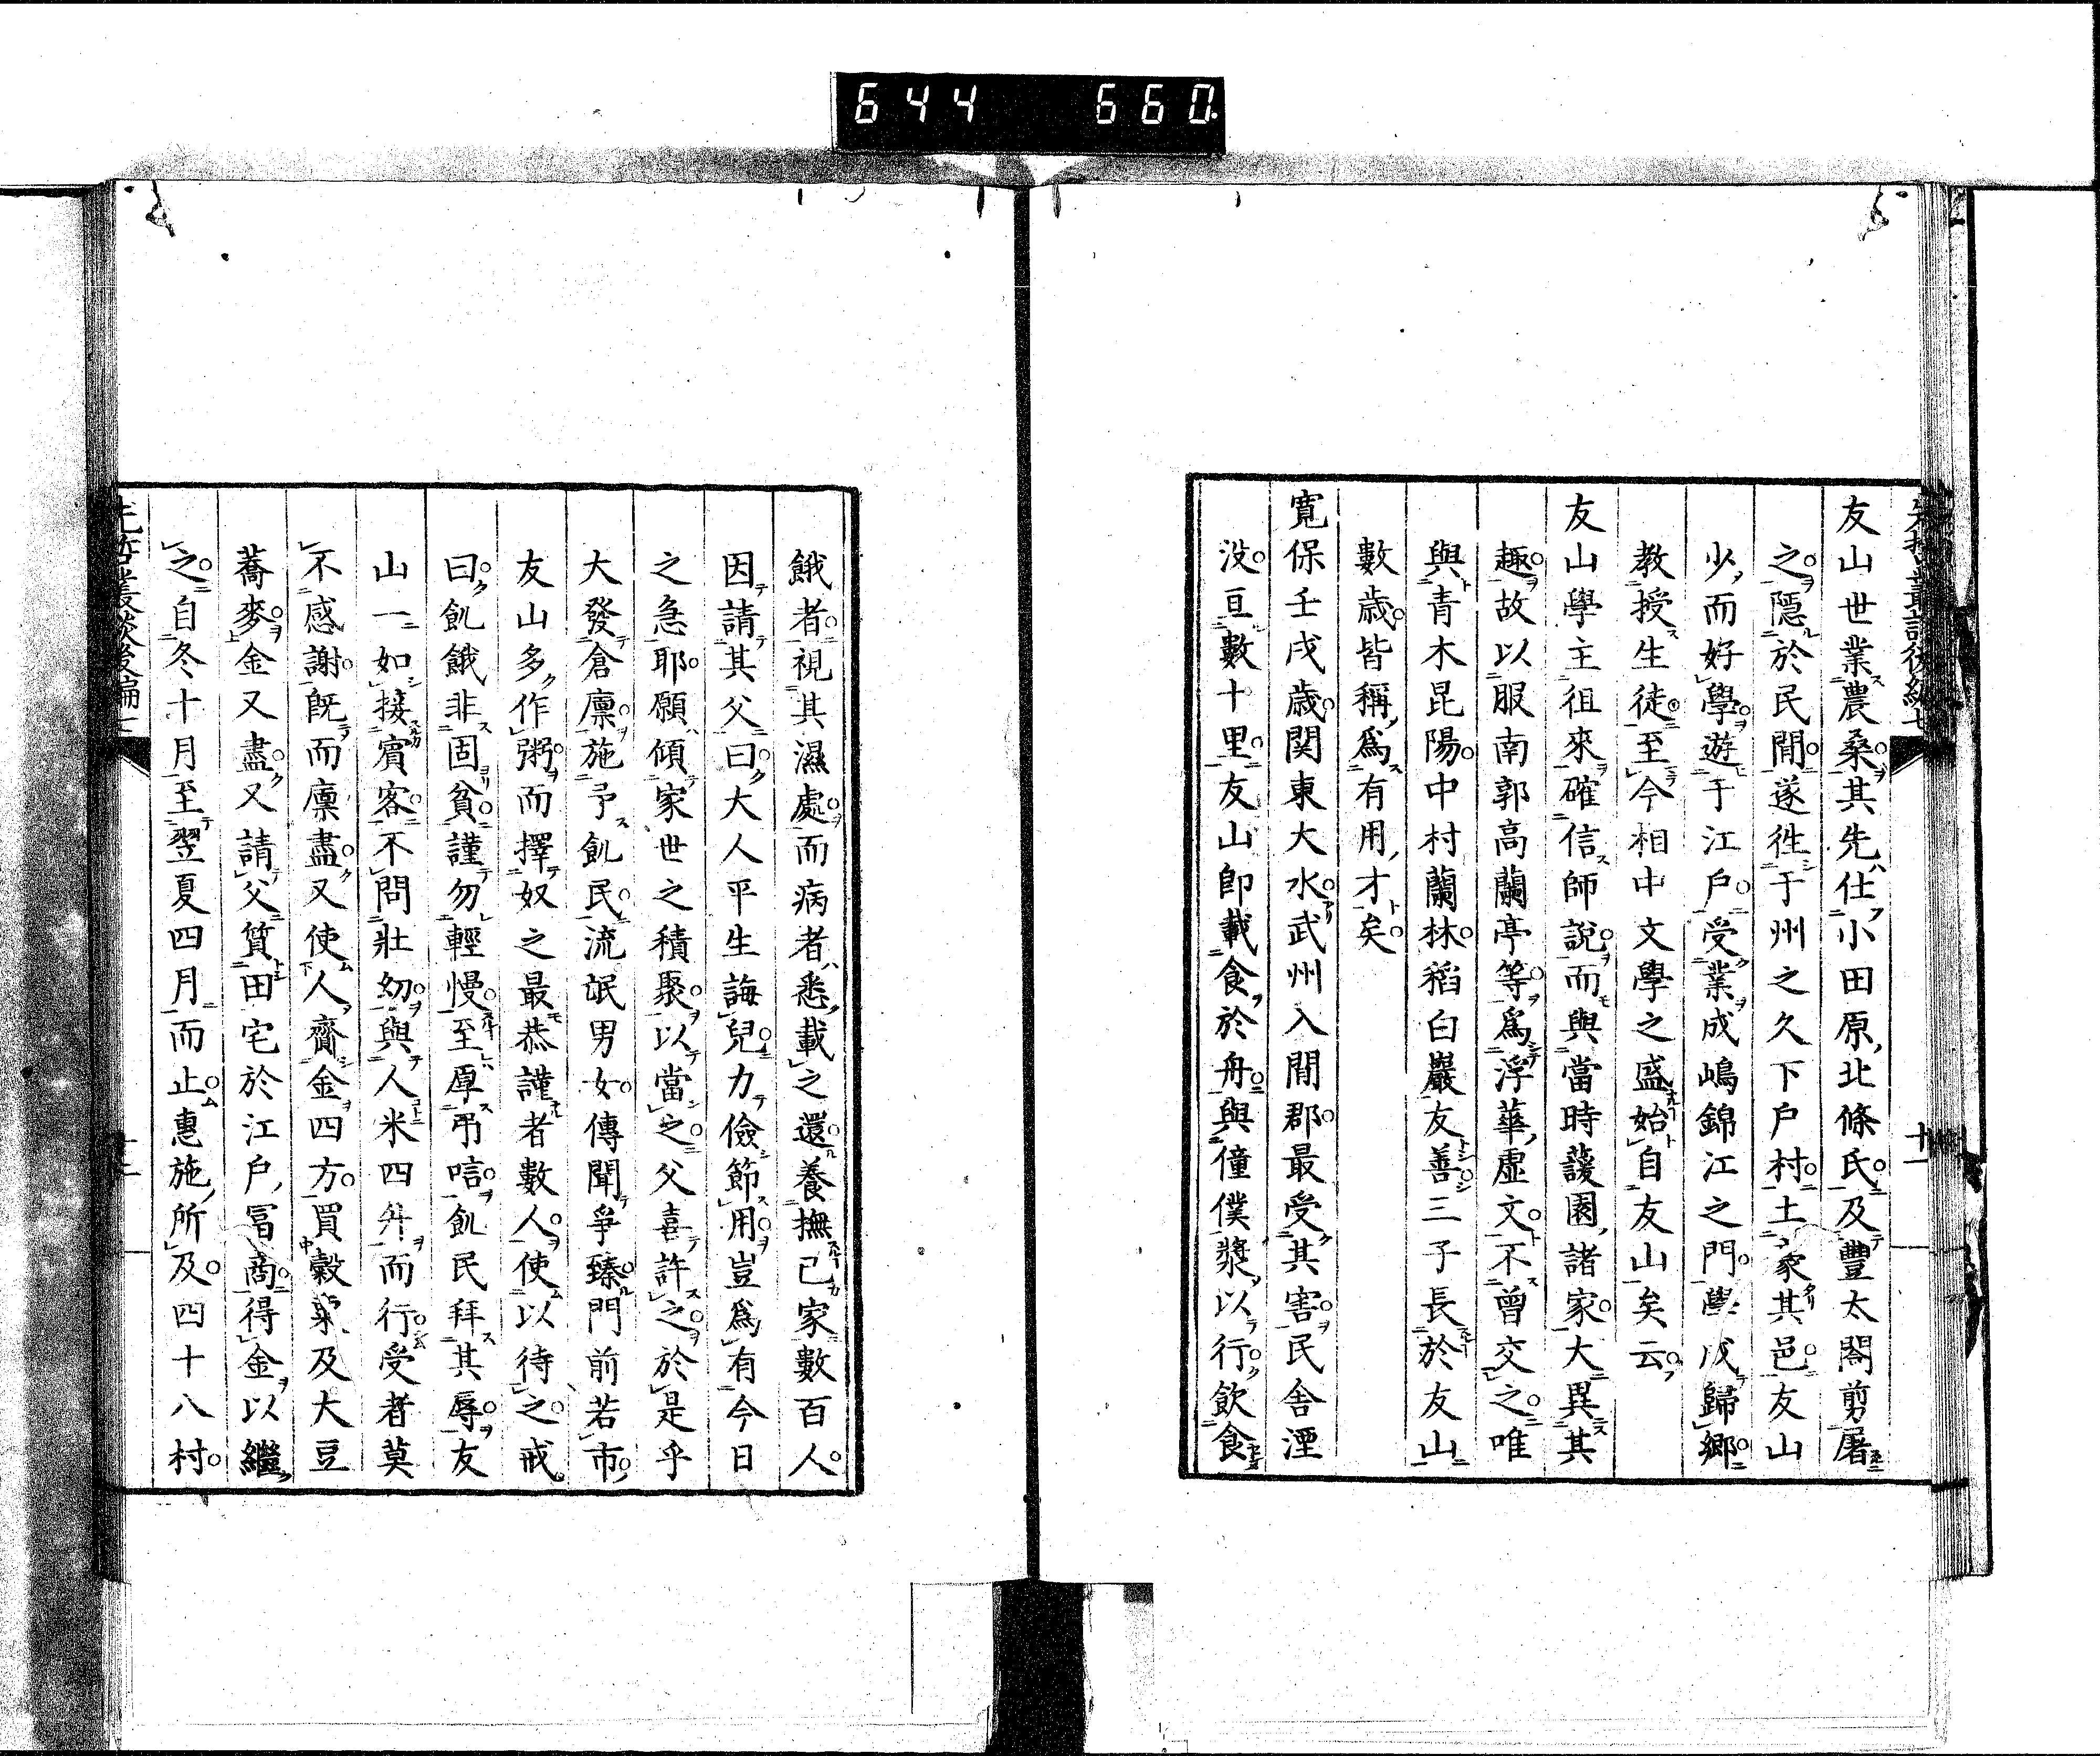 644 660
先哲叢談後編七
十一
友山世業農桑其先仕小田原北條氏及豐太閤剪屠
之隱於民間遂徃于州之久下戶村土豪其邑友山
少而好學遊于江戶受業成嶋錦江之門學成歸鄉
教授生徒至今相中文學之盛始自友山矣云
友山學主徂來確信師說而與當時蘐園諸家大異其
趣故以服南郭高蘭亭等爲浮華虛文不曾交之唯
與青木昆陽中村蘭林稻白巖友善三子長於友山
數歲皆稱爲有用才矣
寬保壬戌歲関東大水武州入間郡最受其害民舍湮
没亘數十里友山即載食於舟與僮僕漿以行飲食
餓者視其濕處而病者悉載之還養撫已家數百人
因請其父曰大人平生誨兒力儉節用豈爲有今日
之急耶願傾家世之積聚以當之父喜許之於是乎
大發倉廩施予飢民流氓男女傳聞爭臻門前若市
友山多作粥而擇奴之最恭謹者數人使以待之戒
曰飢餓非固貧謹勿輕慢至厚弔唁飢民拜其辱友
山一如接賓客不問壯幼與人米四升而行受者莫
不感謝既而廩盡又使人齎金四方買穀菽及大豆
蕎麥金又盡又請父質田宅於江戶冨商得金以繼
之自冬十月至翌夏四月而止惠施所及四十八村
先哲叢談後編七